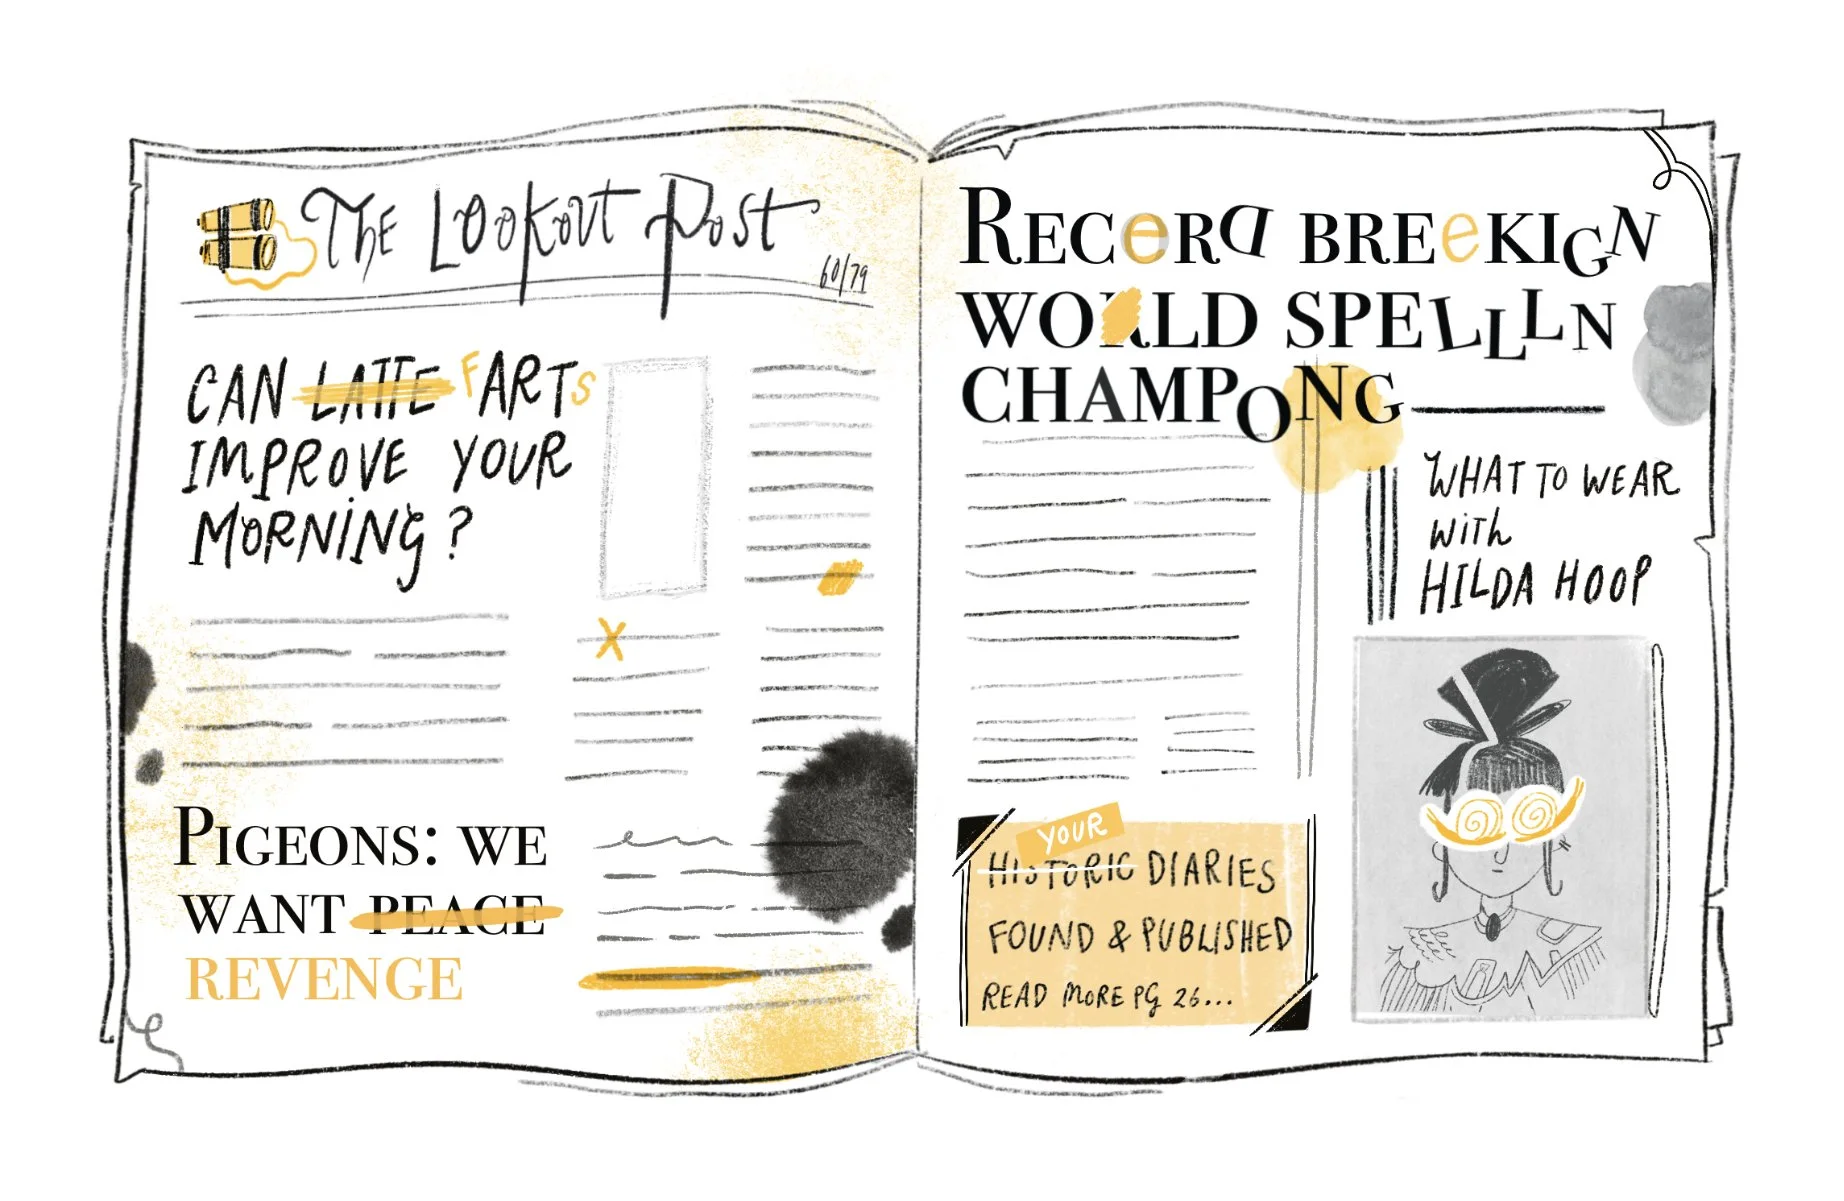 The Lookout Post
60/79
CAN LATTE FARTS
IMPROVE YOUR
MORNING?
PIGEONS: WE
WANT PEACE
REVENGE
RECeRD BREeKIGN
WORLD SPELLLN
CHAMPONG
WHAT TO WEAR
with
HILDA HOOP
YOUR
HISTORIC DIARIES
FOUND & PUBLISHED
READ MORE PG 26...